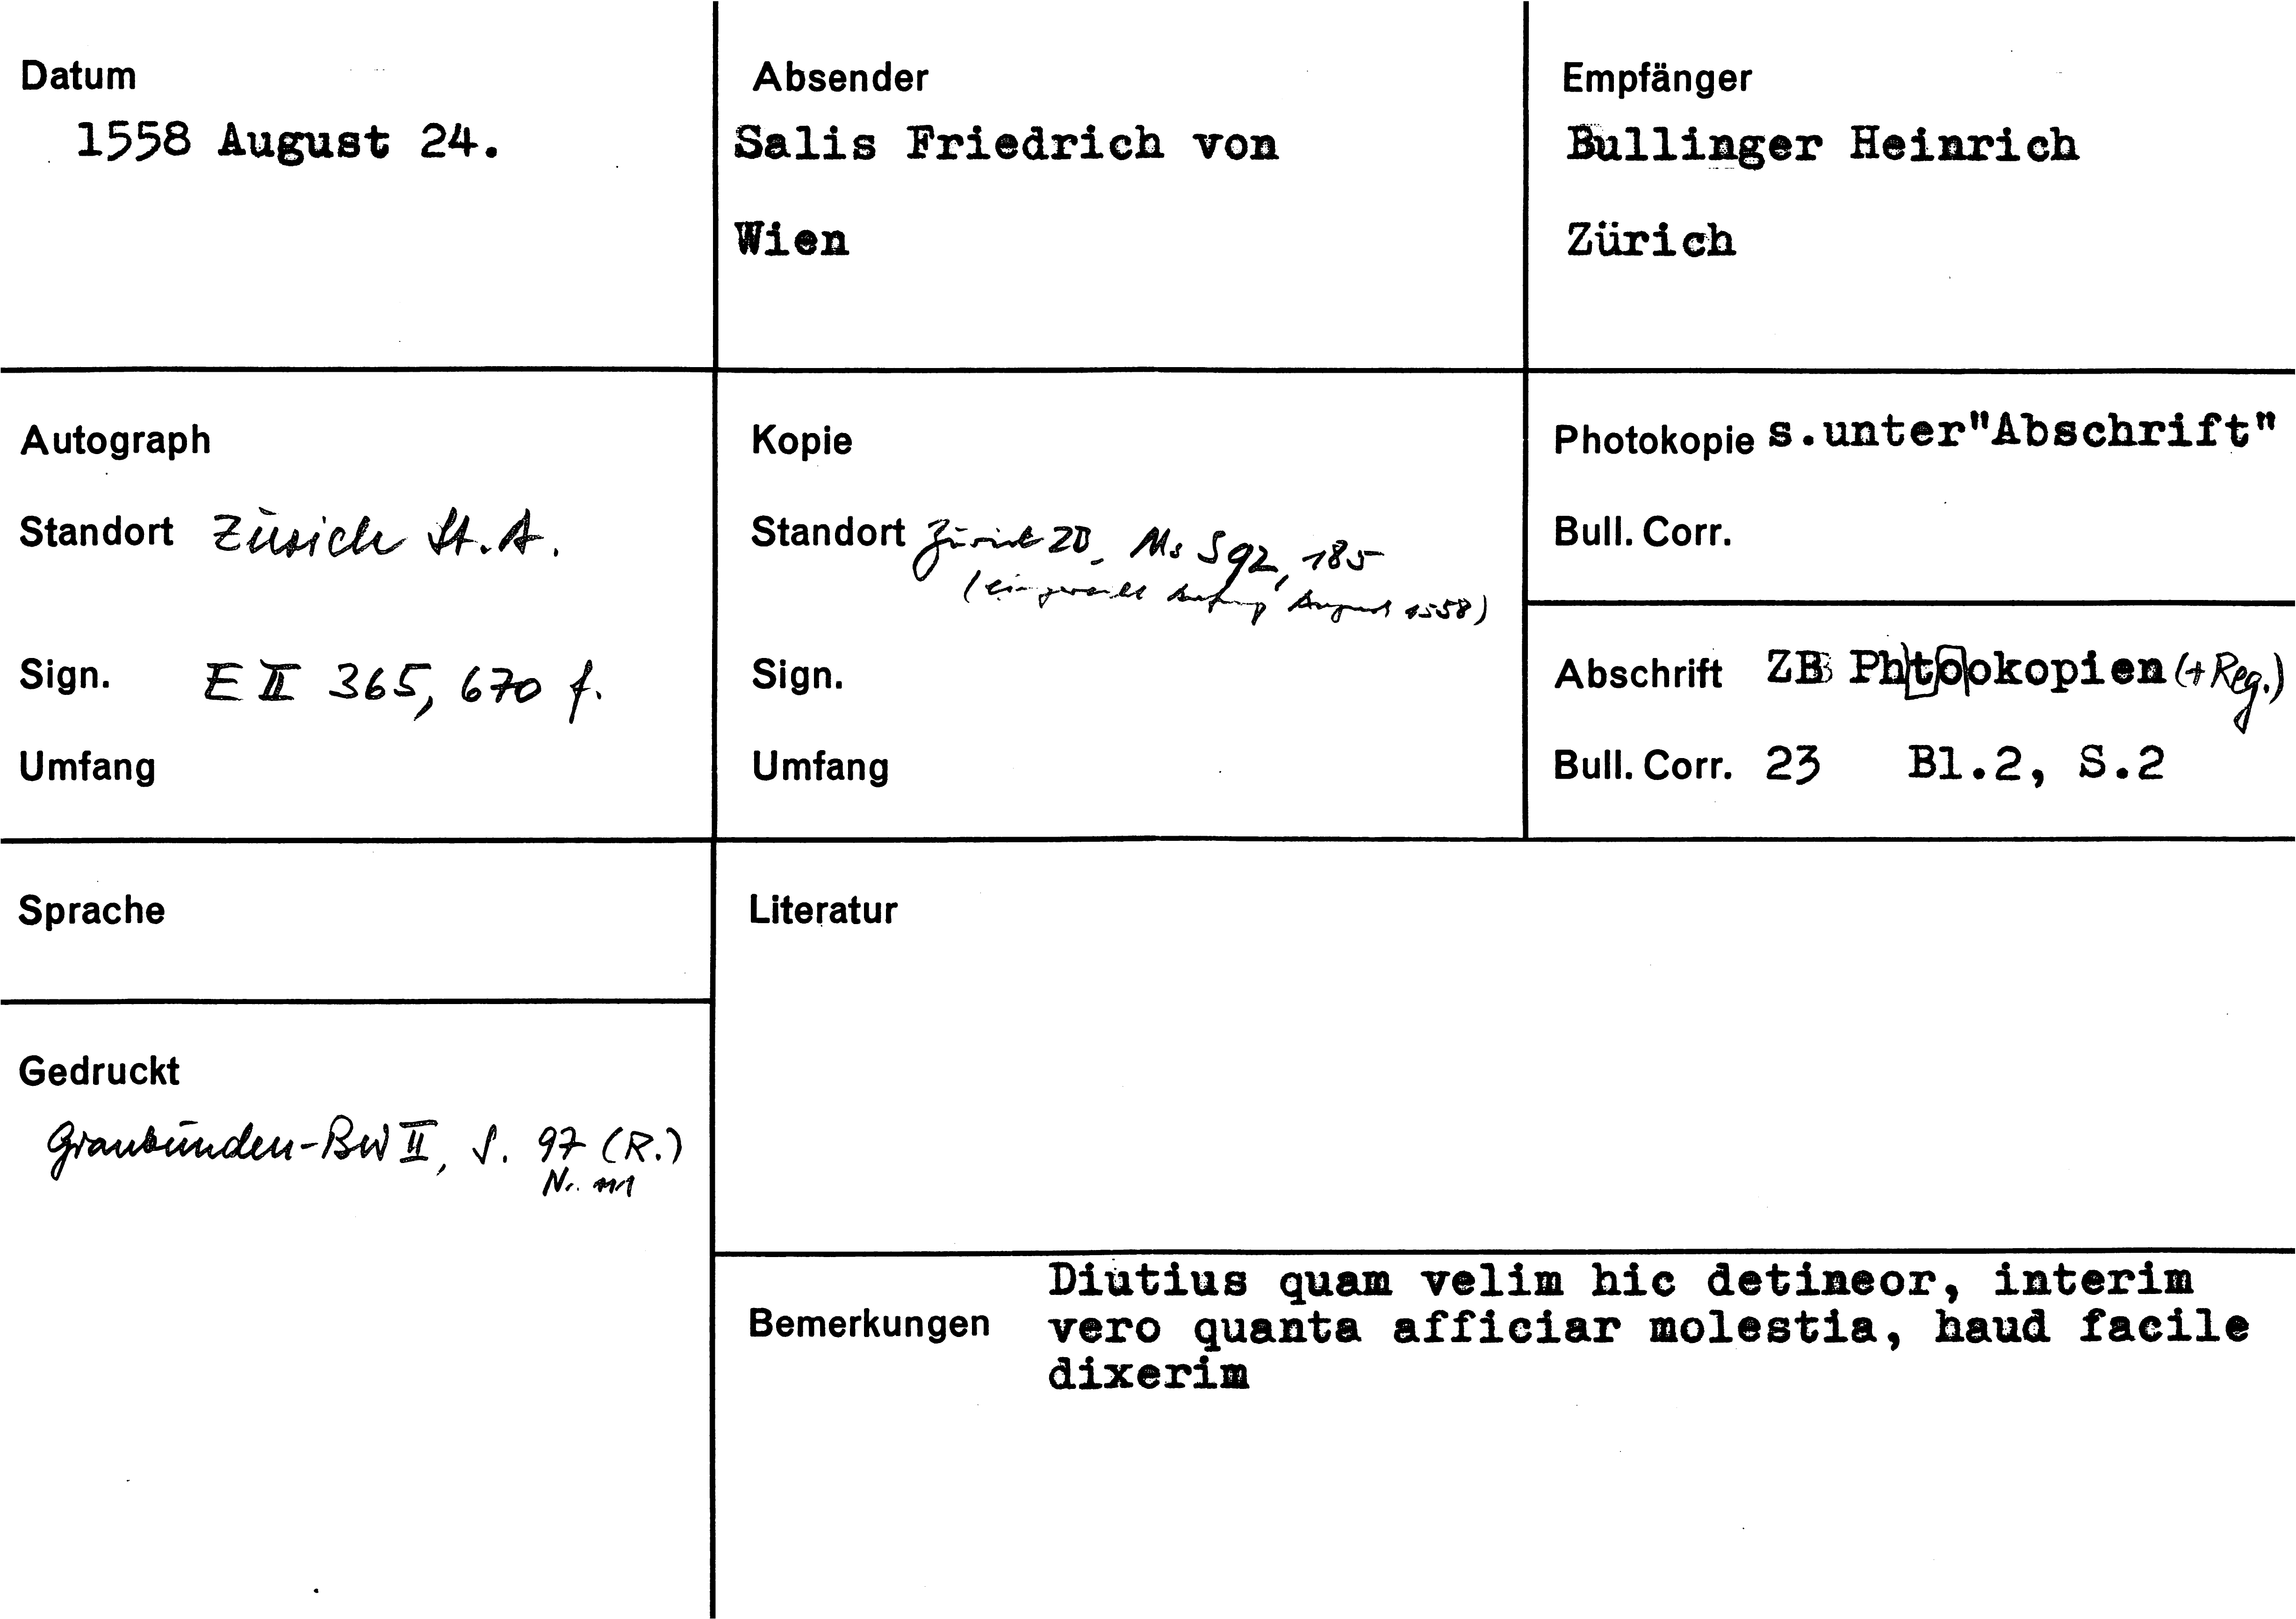 Datum
1558 August 24.
Absender
Salis Friedrich von
Wien
Empfänger
Bullinger Heinrich
Zürich
Autograph
Standort Zürich St. A.
Sign. E II 365, 670 f.
Umfang
Kopie
Standort Zürich ZB, Ms S 92, 185
(eingereiht Anfang August 1558)
Sign.
Umfang
Photokopie s.unter"Abschrift"
Bull. Corr.
Abschrift ZB Phtookopien (+ Reg.)
Bull. Corr. 23 Bl.2, S.2
Sprache
Gedruckt
Graubünden-BW II, S. 97 (R.)
Nr. 111
Literatur
Bemerkungen
Diutius quam velim hic detineor, interim
vero quanta afficiar molestia, haud facile
dixerim